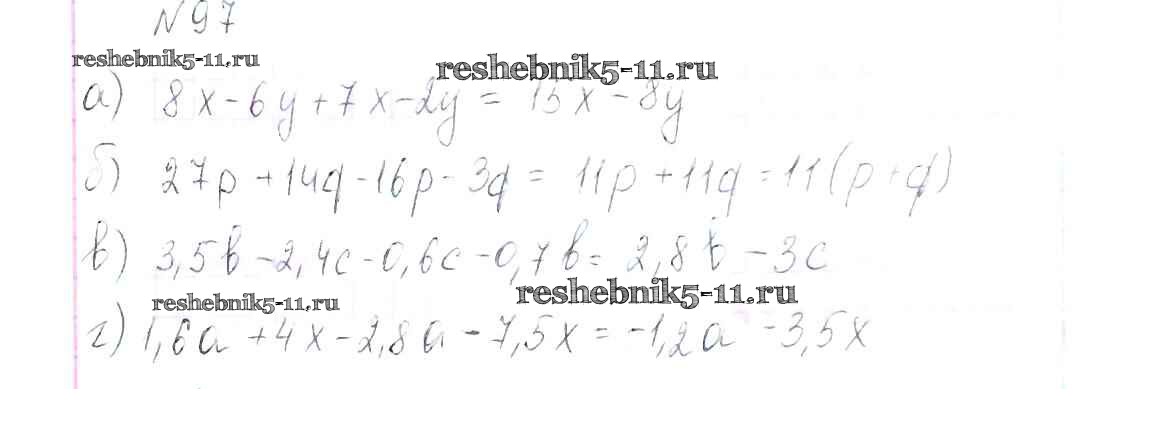 №97
reshebnik5-11.ru
reshebnik5-11.ru
а) 8x-6y+7x-2y = 15x-8y
б) 27p+14q-16p-3q = 11p+11q=11(p+q)
в) 3,5b-2,4c-0,6c-0,7b= 2,8b-3c
reshebnik5-11.ru
reshebnik5-11.ru
г) 1,6a+4x-2,8a-7,5x=-1,2a-3,5x